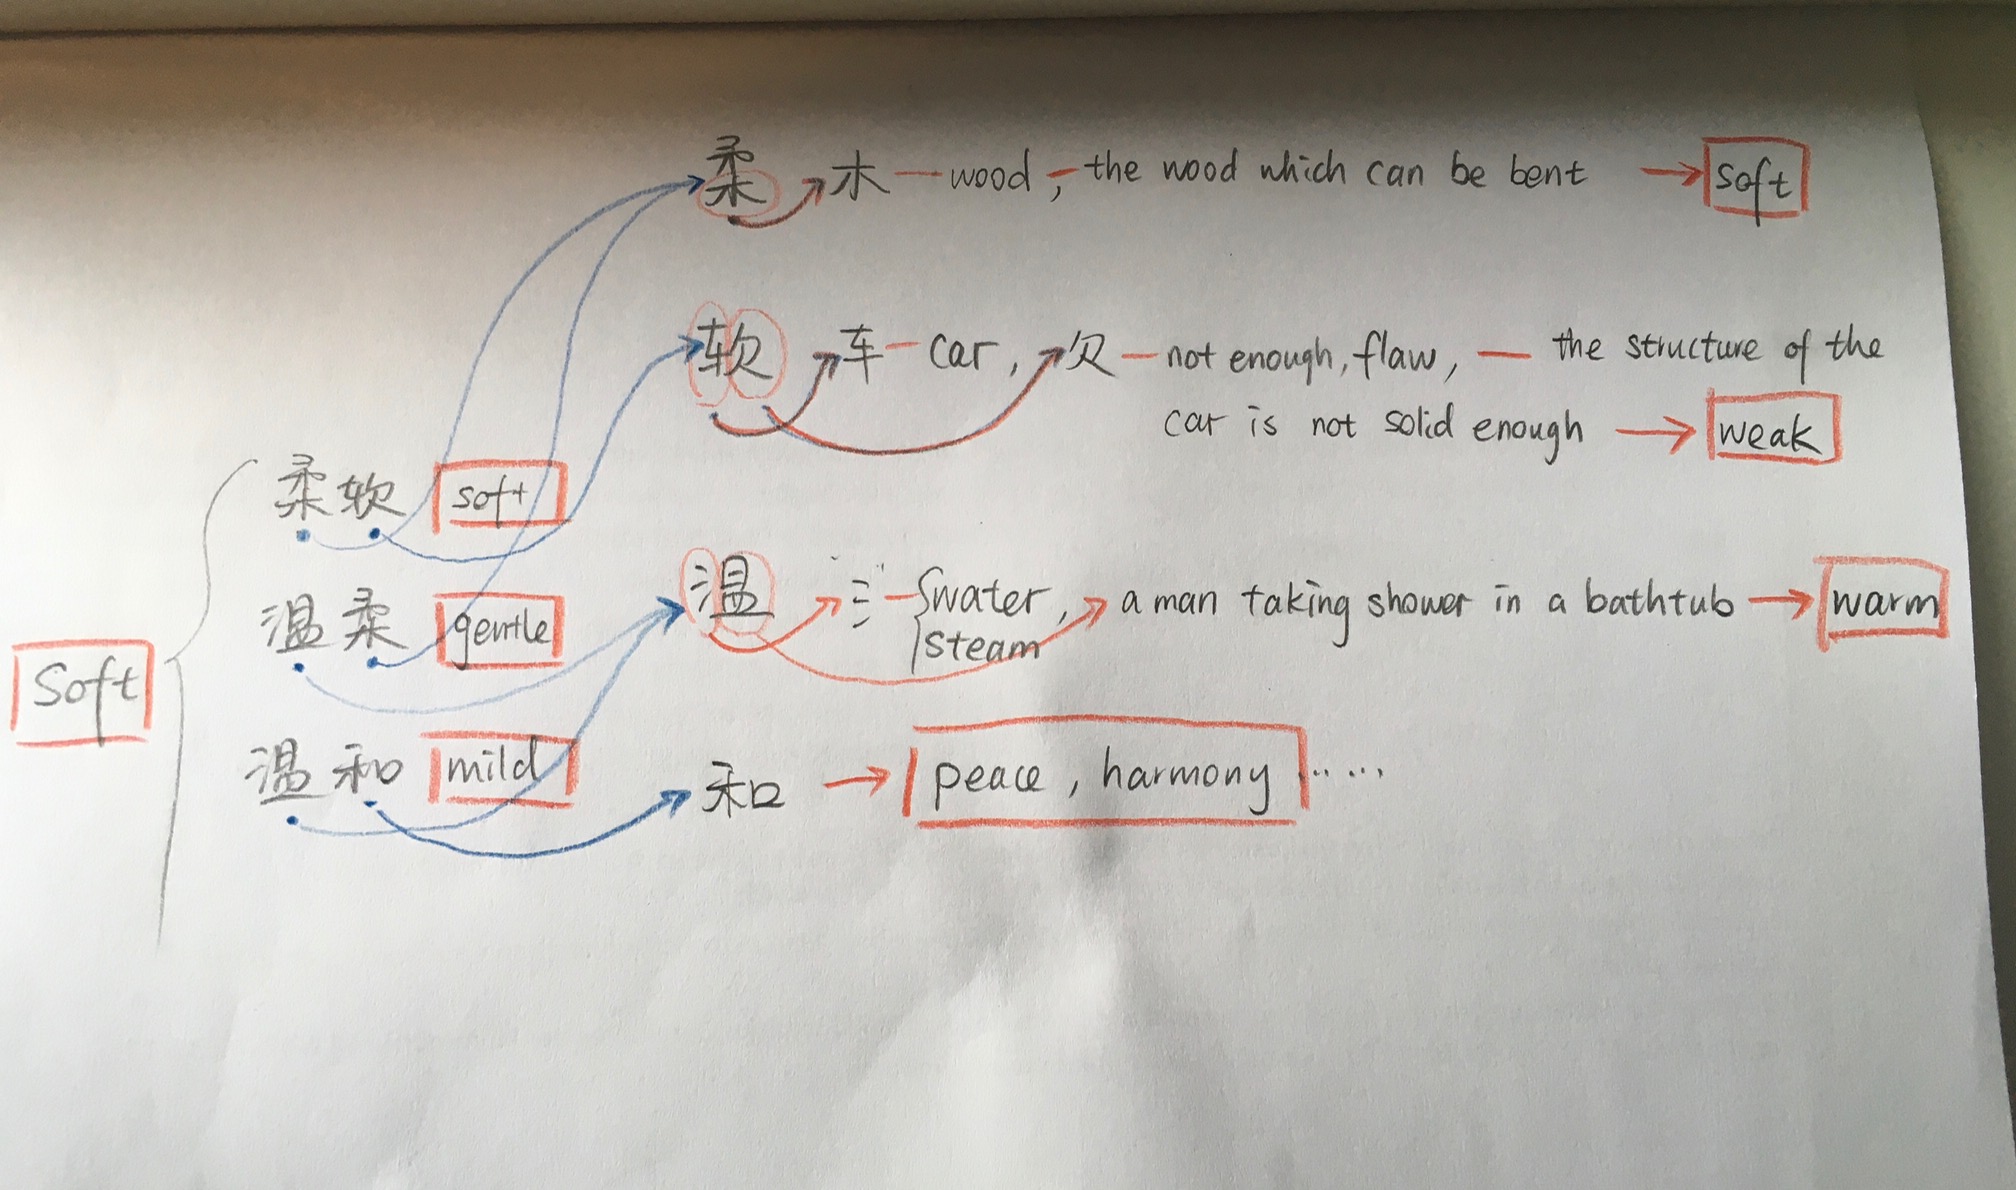 柔 木 — wood, — the wood which can be bent → soft
软 车 — car, 欠 — not enough, flaw, — the structure of the
car is not solid enough → weak
柔软 soft
温柔 gentle
温 氵 — water, a man taking shower in a bathtub → warm
steam
Soft
温和 mild
和 → peace, harmony ......